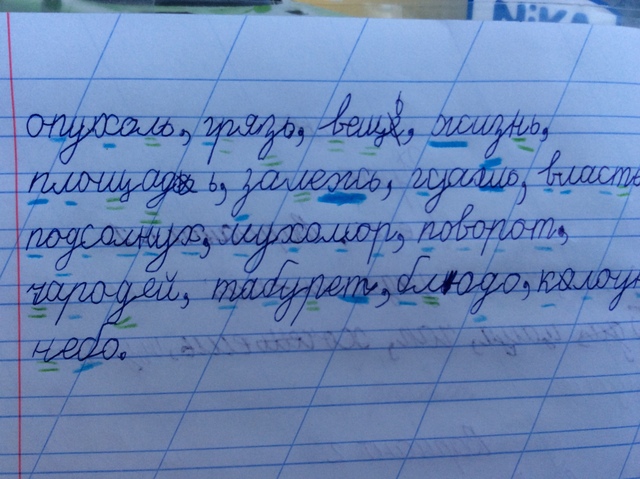 NiKA
опухоль, грязь, вещь, жизнь,
площадь, залежь, власть
подсолнух, мухомор, поворот,
чародей, табурет, блюдо,
небо.